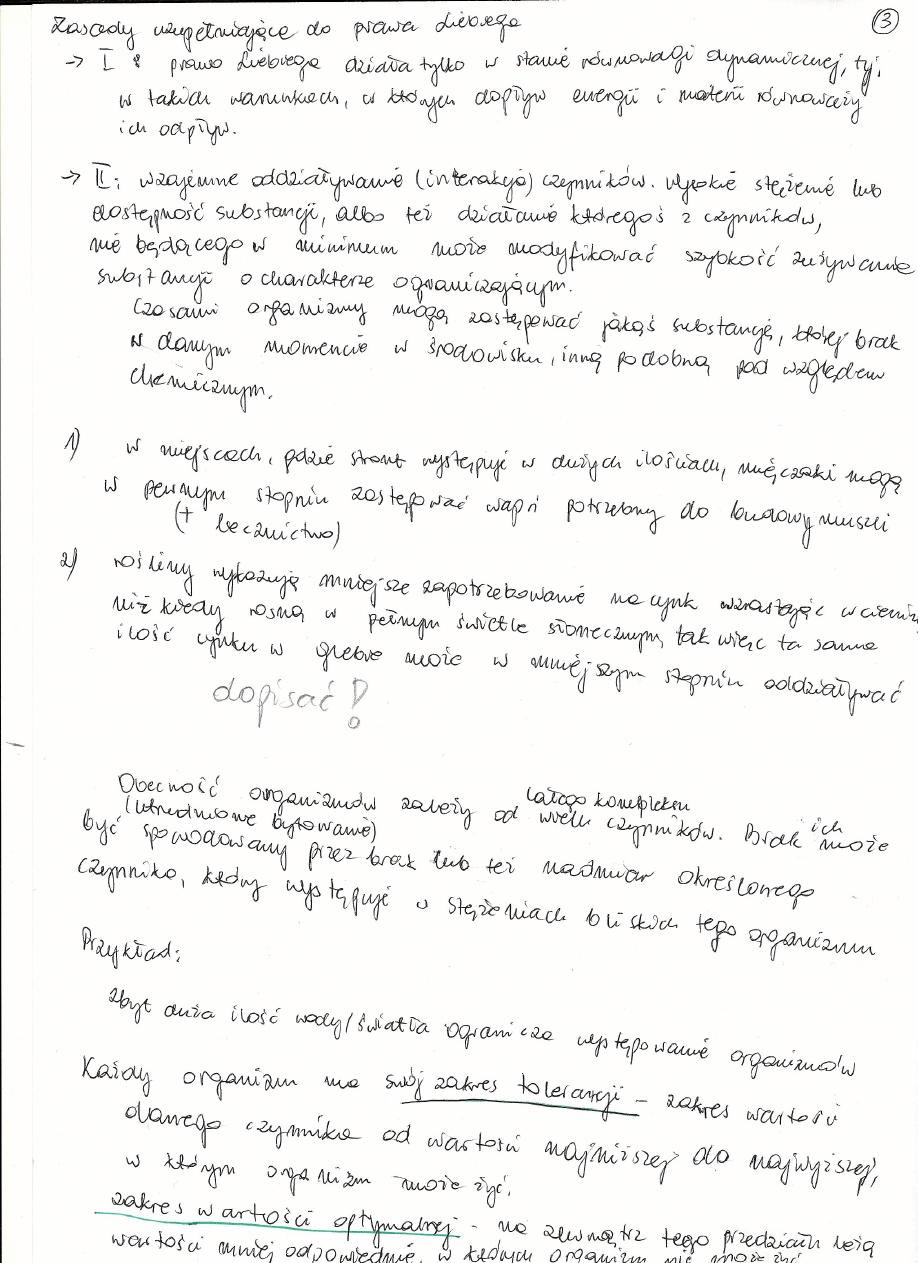 3
Zasady uzupełniające do prawa Liebiega
→ I: prawo Liebiega działa tylko w stanie równowagi dynamicznej, tj.
w takich warunkach, w których dopływ energii i materii równoważy
ich odpływ.
→ II: wzajemne oddziaływanie (interakcja) czynników. Wysokie stężenie lub
dostępność substancji, albo też działanie któregoś z czynników,
nie będącego w minimum może modyfikować szybkość zużywania
substancji o charakterze ograniczającym.
Czasami organizmy mogą zastępować jakąś substancję, której brak
w danym momencie w środowisku, inną podobną pod względem
chemicznym.
1) w miejscach, gdzie stront występuje w dużych ilościach, mięczaki mogą
w pewnym stopniu zastępować wapń potrzebny do budowy muszli
(+ lecznictwo)
2) rośliny wykazują mniejsze zapotrzebowanie na cynk wzrastając w cieniu,
niż kiedy rosną w pełnym świetle słonecznym, tak więc ta sama
ilość cynku w glebie może w mniejszym stopniu oddziaływać
dopisać!
Obecność organizmów zależy od całego kompleksu wielu czynników. Brak ich może
(utrudnione bytowanie)
być spowodowany przez brak lub też nadmiar określonego
czynnika, który występuje w stężeniach bliskich tego organizmu
Przykład:
zbyt duża ilość wody/światła ogranicza występowanie organizmów
Każdy organizm ma swój zakres tolerancji – zakres wartości
danego czynnika od wartości najniższej do najwyższej,
w którym organizm może żyć.
zakres wartości optymalnej - na zewnątrz tego przedziału leżą
wartości mniej odpowiednie, w których organizm nie może żyć